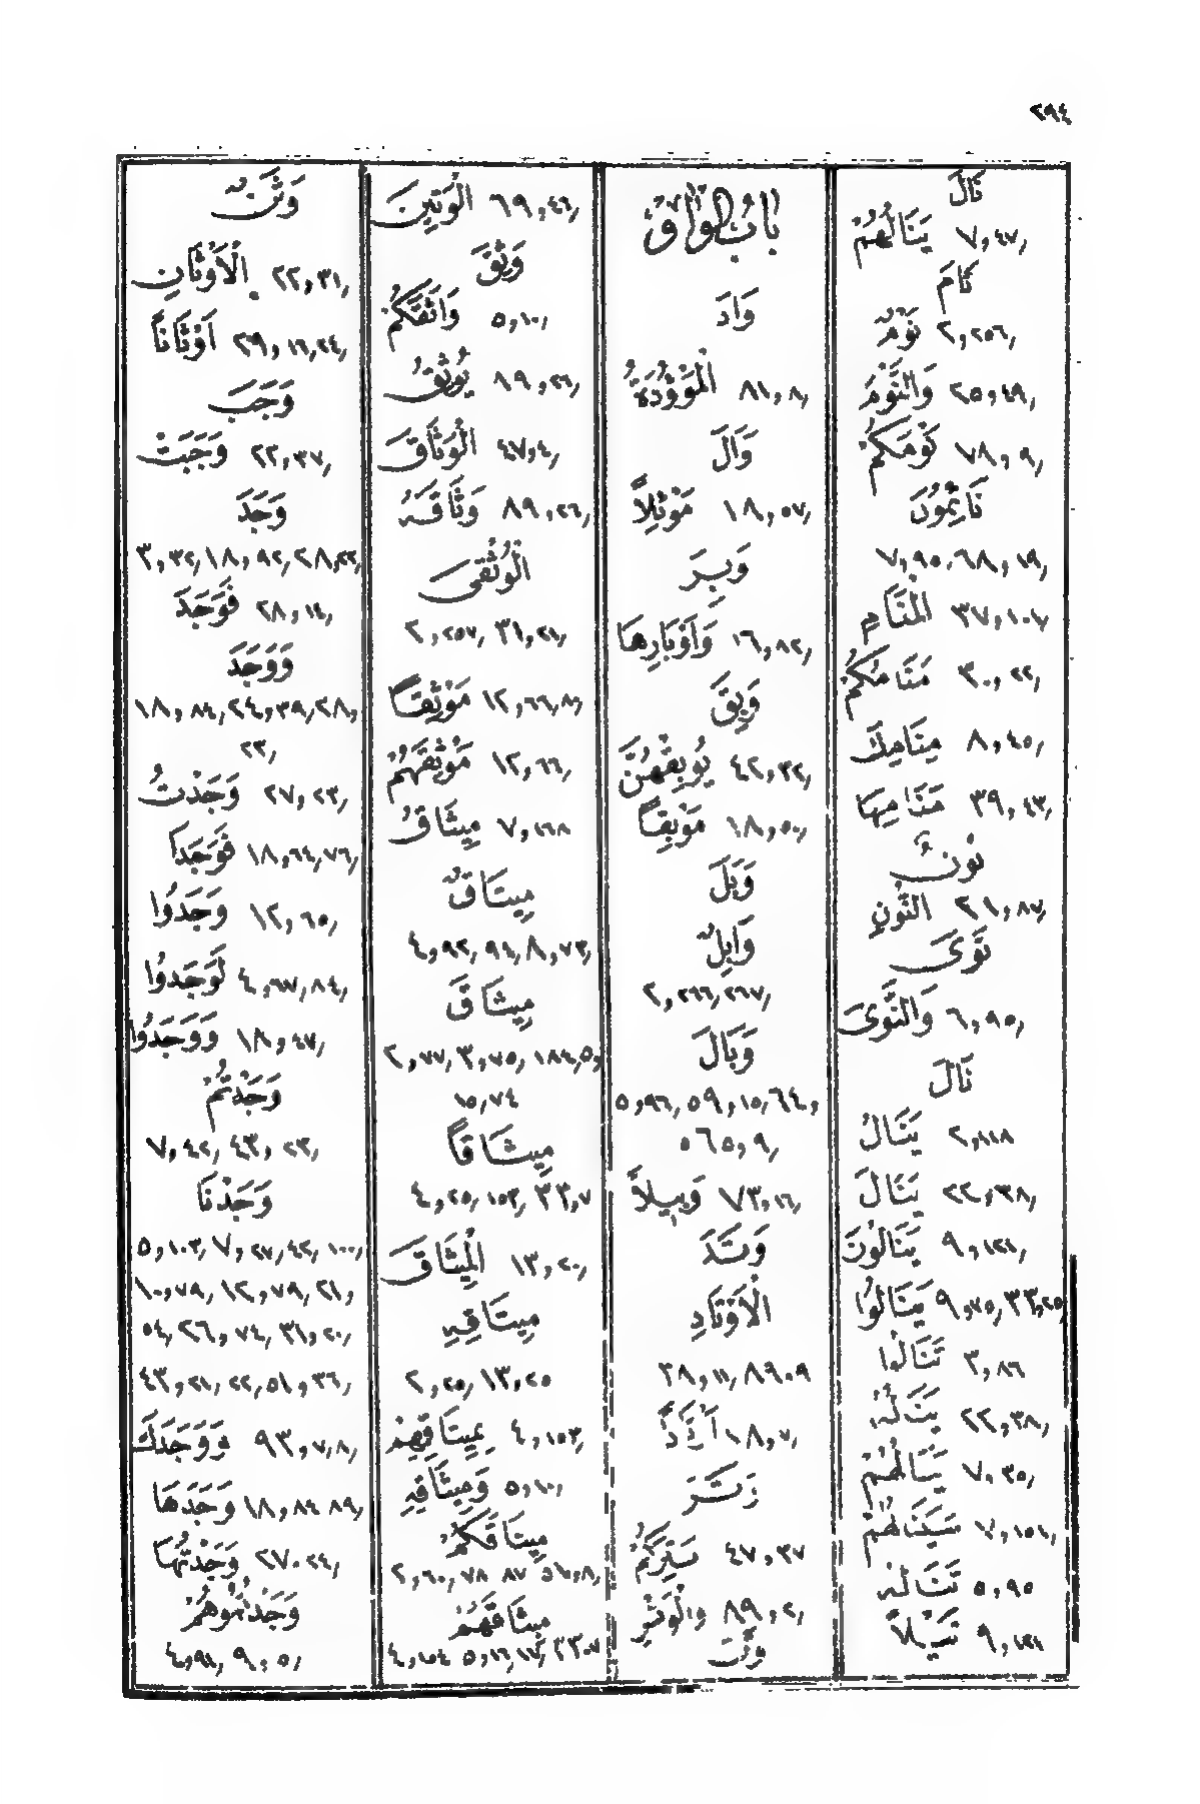 ٢٩٤
نَالَ
يَنَالُهُمْ ٧,٤٧,
نَامَ
نَوْمٌ ٢,٢٥٦,
وَالنَّوْمَ ٢٥,٤٩,
نَوْمَكُمْ ٧٨,٩,
نَائِمُونَ
٧,٩٥,٦٨,١٩,
الْمَنَامِ ٣٧,١٠٢,
مَنَامُكُمْ ٣٠,٢٢,
مَنَامِكَ ٨,٤٥,
مَنَامِهَا ٣٩,٤٣,
نُونٌ
النُّونِ ٢١,٨٧,
نَوَىَ
وَالنَّوَىَ ٦,٩٥,
نَالَ
يَنَالُ ٢,١١٨
يَنَالَ ٢٢,٣٨,
يَنَالُونَ ٩,١٢١,
يَنَالُوا ٩,٧٥,٣٣,٢٥,
تَنَالُوا ٣,٨٦
يَنَالُهُ ٢٢,٣٨,
يَنَالُهُمْ ٧,٣٥,
سَيَنَالُهُمْ ٧,١٥١,
تَنَالُهُ ٥,٩٥
نَيْلاً ٩,١٢١
بَابُ الْوَاوِ
وَادَ
الْمَوْؤُدَةُ ٨١,٨,
وَالَ
مَوْئِلاً ١٨,٥٧,
وَبِرَ
وَاَوْبَارِهَا ١٦,٨٢,
وَبِقَ
يُوبِقْهُنَّ ٤٢,٣٢,
مَوْبِقاً ١٨,٥٠,
وَبَلَ
وَابِلٌ
٢,٢٦٦,٢٦٧,
وَبَالَ
٥,٩٦,٥٩,١٥,٦٤,
٥٦٥,٩,
وَبِيلاً ٧٣,١٦,
وَتَدَ
الْاَوْتَادِ
٣٨,١١,٨٩٠٩
١٨,٧,
وَتَرَ
يَتِرَكُمْ ٤٧,٣٧
وَالْوَتْرِ ٨٩,٢,
وَتَنَ
الْوَتِينَ ٦٩,٤٦,
وَثِقَ
وَاثَقَكُمْ ٥,١٠,
يُوثِقُ ٨٩,٢٦,
الْوَثَاقَ ٤٧,٤,
وَثَاقَهُ ٨٩,٢٦,
الْوُثْقَى
٢,٢٥٧,٣١,٢١,
مَوْثِقاً ١٢,٦٦,٨٠,
مَوْثِقَهُمْ ١٢,٦٦,
مِيثَاقُ ٧,١٦٨
مِيثَاقٌ
٤,٩٢,٩٤,٨,٧٣,
مِيثَاقَ
٢,٧٧,٣,٧٥,١٨٤,٥,
١٥,٧٤
مِيثَاقاً
٤,٢٥,١٥٣,٣٣,٧
الْمِيثَاقَ ١٣,٢٠,
مِيثَاقِهِ
٢,٢٥,١٣,٢٥
بِمِيثَاقِهِمْ ٤,١٥٣,
وَمِيثَاقِهِ ٥,١٠,
مِيثَاقَكُمْ
٢,٦٠,٧٨ ٨٧
مِيثَاقَهُمْ
٤,١٥٤ ٥,١٦,١٧, ٣٣٠٧
وَثَنٌ
الْاَوْثَانِ ٢٢,٣١,
اَوْثَاناً ٢٩,١٦,٢٤,
وَجَبَ
وَجَبَتْ ٢٢,٣٧,
وَجَدَ
٣,٣٢,١٨,٩٢,٢٨,٢٢,
فَوَجَدَ ٢٨,١٤,
وَوَجَدَ
١٨,٨٤,٢٤,٣٩,٢٨,
٢٣,
وَجَدْتُ ٢٧,٢٣,
فَوَجَدَا ١٨,٦٤,٧٦,
وَجَدُوا ١٢,٦٥,
لَوَجَدُوا ٤,٦٧,٨٤,
وَوَجَدُوا ١٨,٤٧,
وَجَدْتُمْ
٧,٤٢, ٤٣,٢٣,
وَجَدْنَا
٥,١٠٣,٧,٢٧,٤٢,١٠٠,
١٠,٧٩,١٢,٧٩,٢١,
٥٤,٢٦,٧٤,٣١,٢٠,
٤٣,٢١,٢٢,٥١,٣٦,
وَوَجَدَكَ ٩٣,٧,٨,
وَجَدَهَا ١٨,٨٤ ٨٩,
وَجَدْتُهَا ٢٧٠٢٤,
وَجَدْتُمُوهُمْ
٤,٩١, ٩,٥,